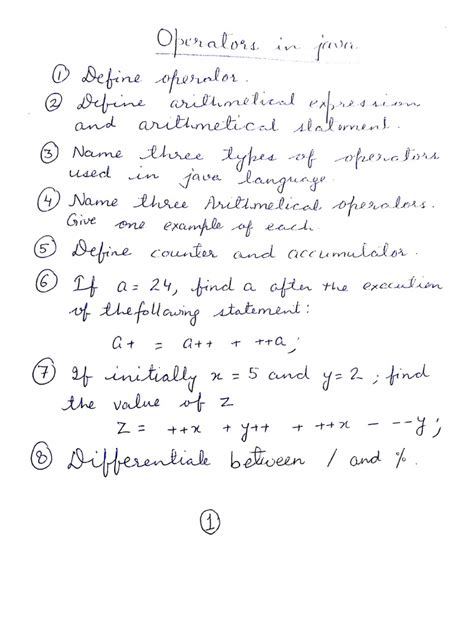 Operators in java.
① Define operator.
② Define arithmetical expression
and arithmetical statement.
③ Name three types of operators
used in java language.
④ Name three Arithmetical operators.
Give one example of each.
⑤ Define counter and accumulator.
⑥ If a = 24, find a after the execution
of the following statement:
a+ = a++ + ++a;
⑦ If initially x = 5 and y = 2 ; find
the value of z
Z = ++x + y++ + ++x - --y;
⑧ Differentiate between / and %.
①